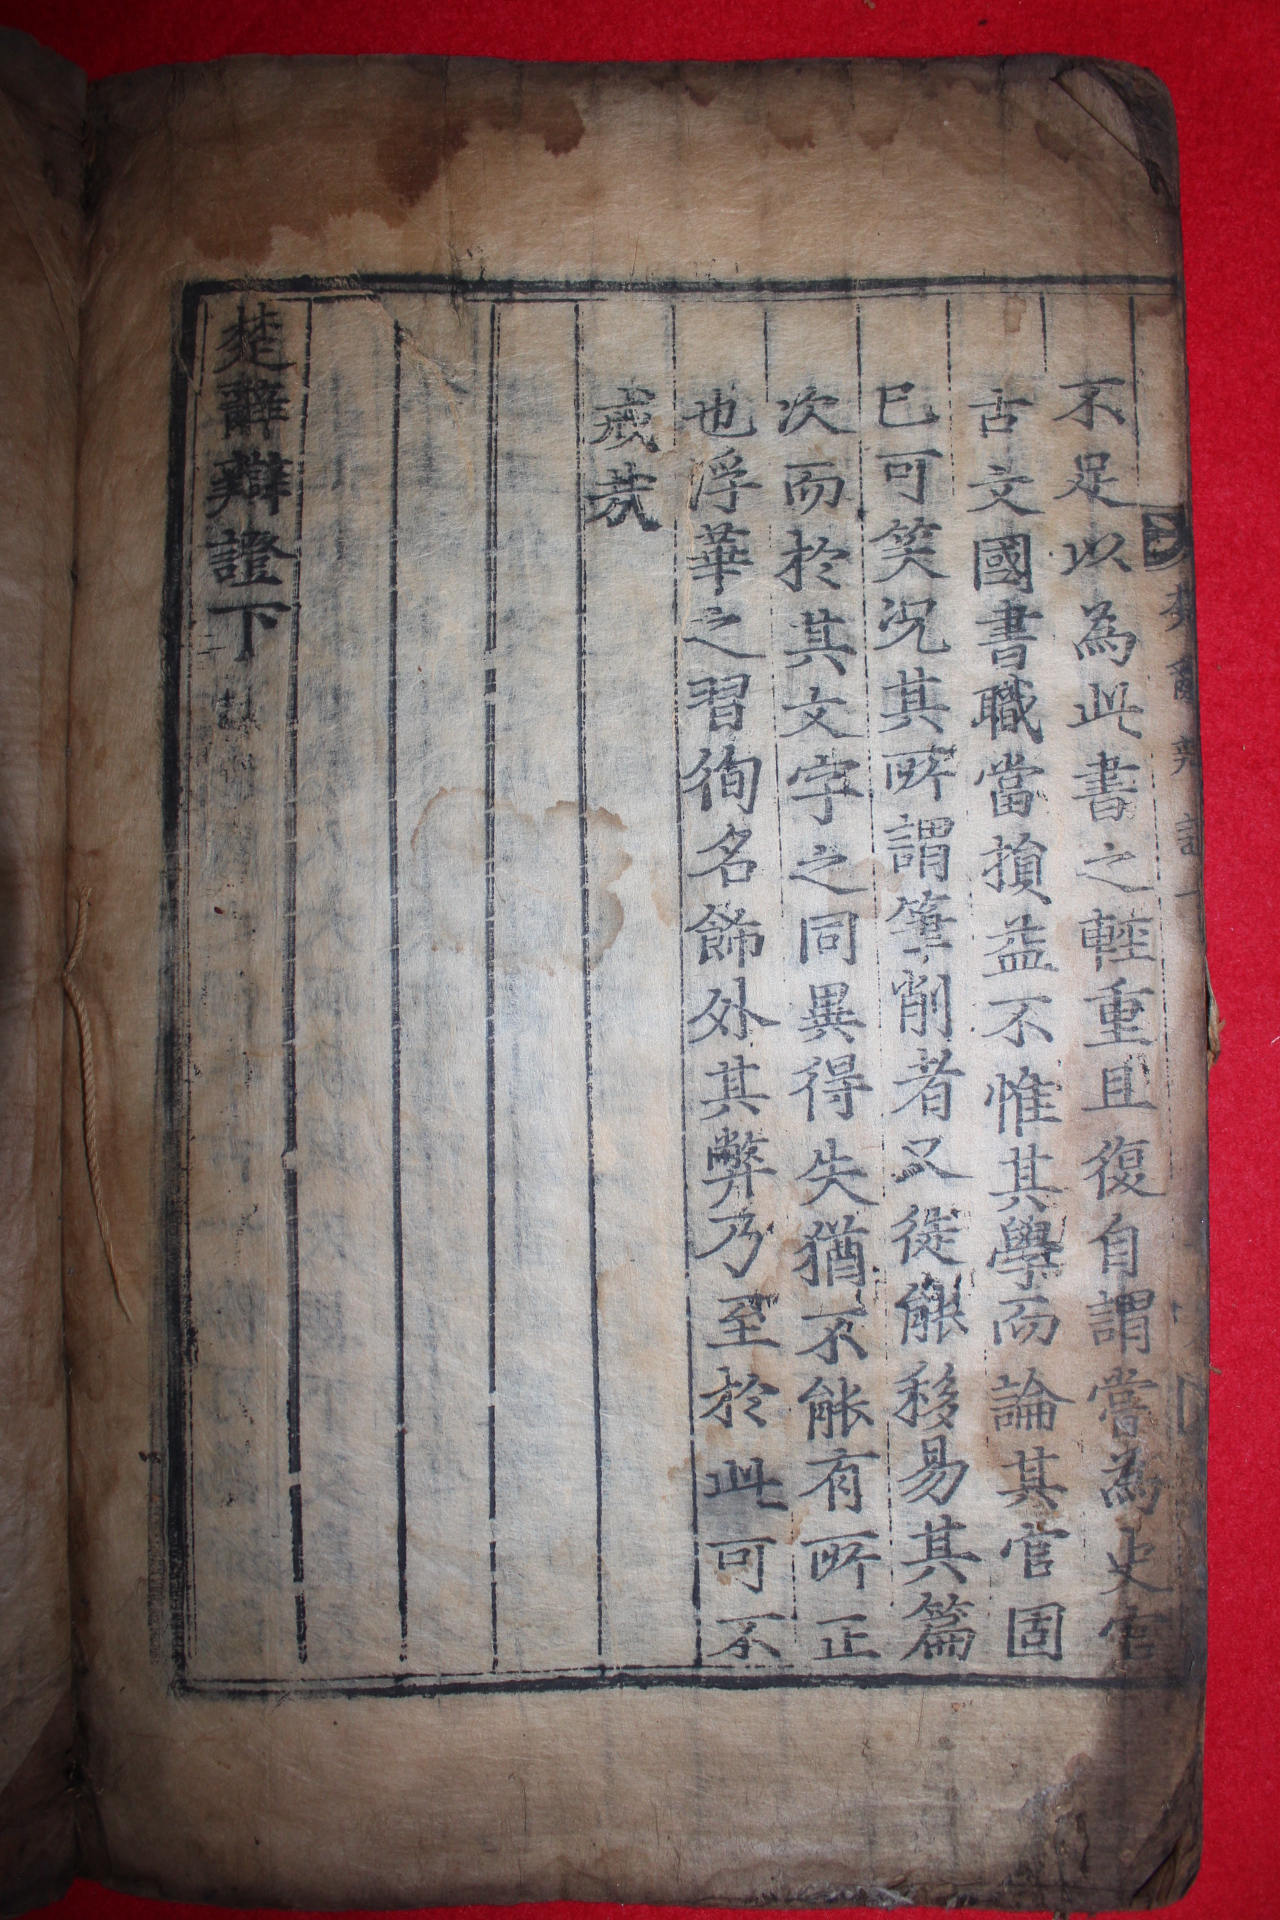 不足以為此書之輕重且復自謂嘗為史官
古文國書職當損益不惟其學而論其官固
已可笑况其所謂筆削者又徒能移易其篇
次而於其文字之同異得失猶不能有所正
也浮華之習徇名飾外其弊乃至於此可不
戒哉
楚辭辯證下